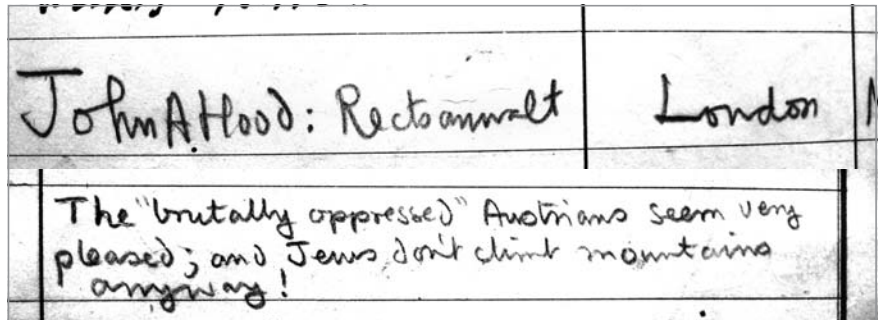 John A. Hood: Rectsanwalt London
The "brutally oppressed" Austrians seem very
pleased; and Jews don't climb mountains
anyway!